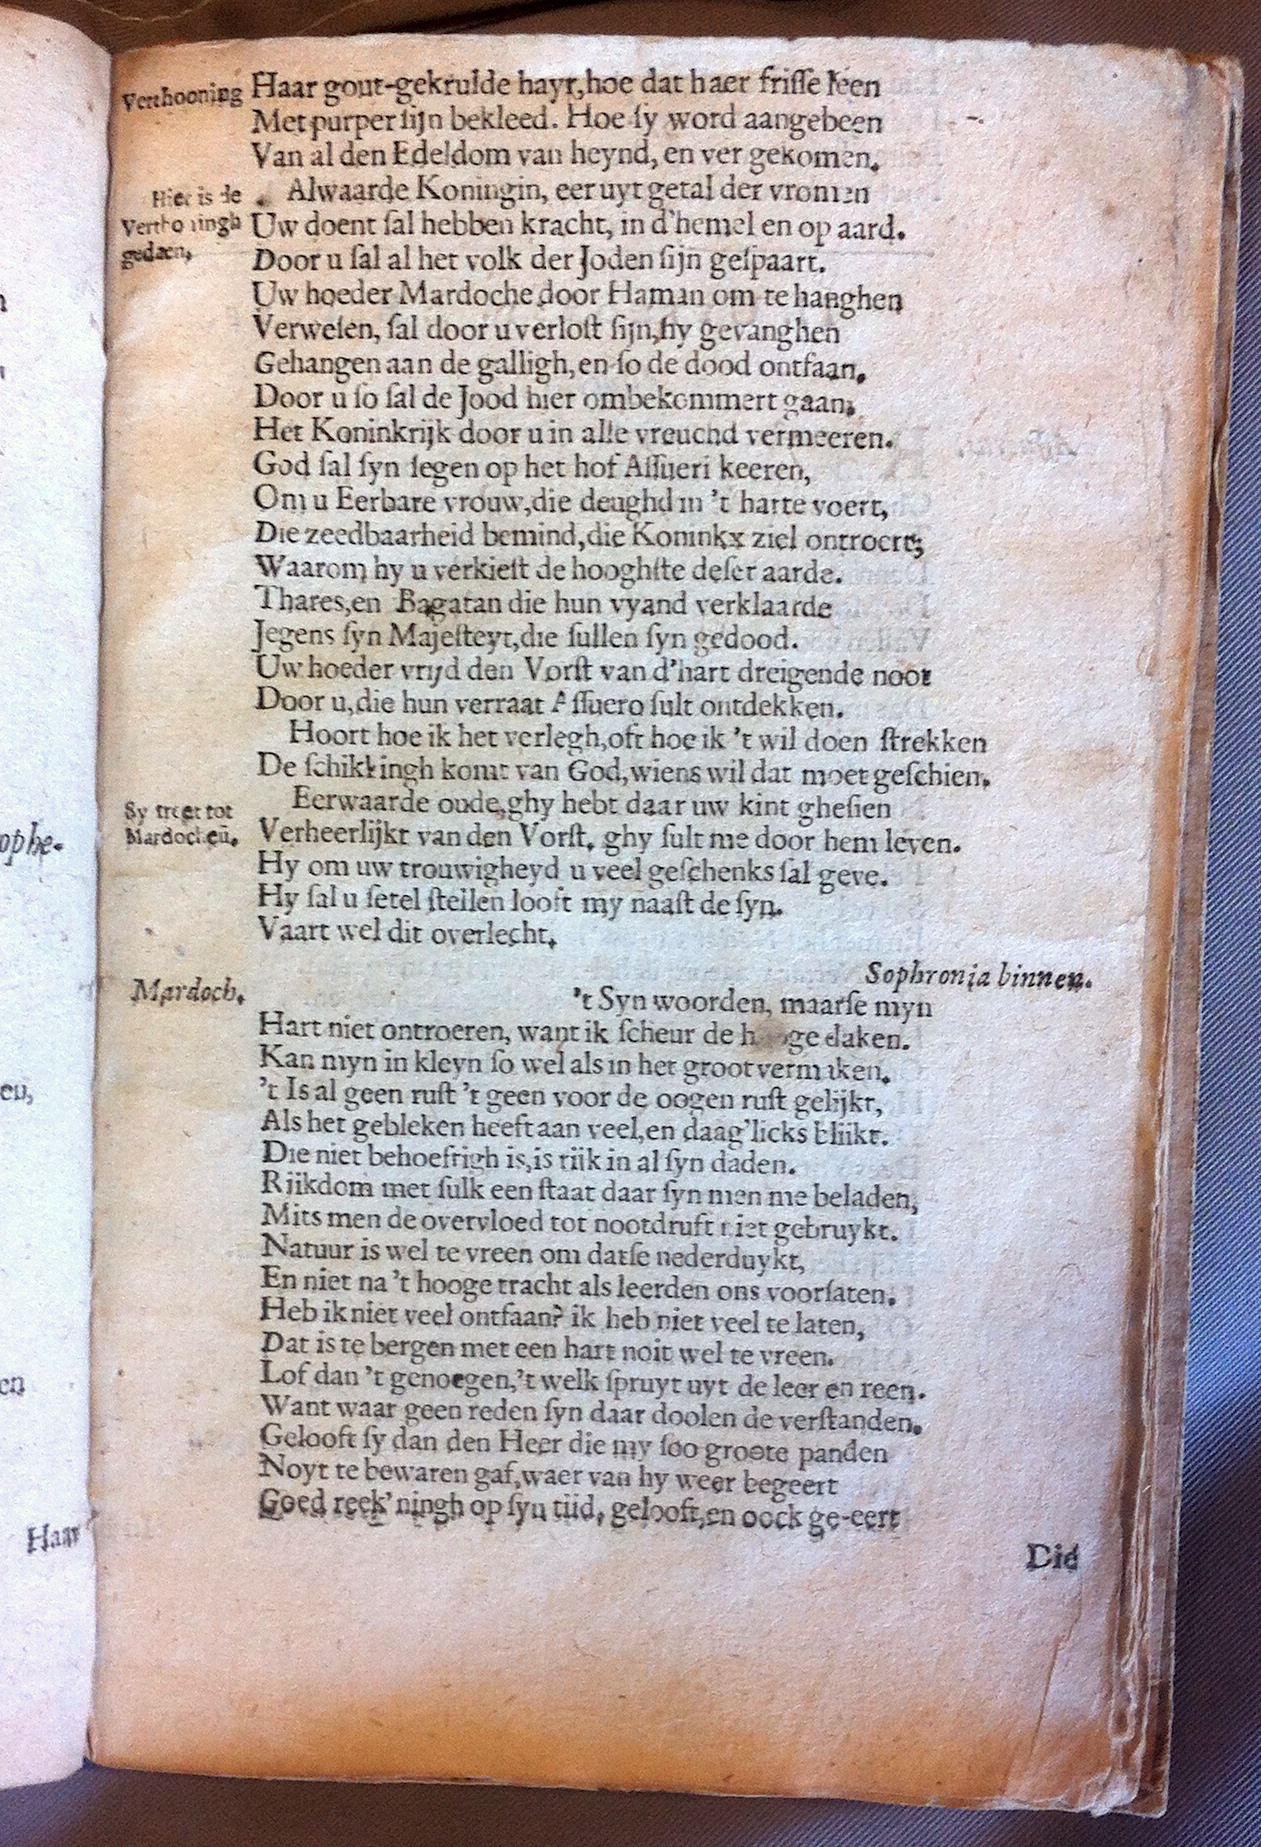 Verthooning Haar gout-gekrulde hayr, hoe dat haer friſſe leen
Met purper ſijn bekleed. Hoe ſy word aangebeen
Van al den Edeldom van heynd, en ver gekomen.
Hier is de Alwaarde Koningin, eer uyt getal der vromen
Verthoningh Uw doent ſal hebben kracht, in d'hemel en op aard.
gedaen. Door u ſal al het volk der Joden ſijn geſpaart.
Uw hoeder Mardoche door Haman om te hanghen
Verweſen, ſal door u verloſt ſijn, hy gevanghen
Gehangen aan de galligh, en ſo de dood ontfaan.
Door u ſo ſal de Jood hier ombekommert gaan.
Het Koninkrijk door u in alle vreuchd vermeeren.
God ſal ſyn ſegen op het hof Aſſueri keeren,
Om u Eerbare vrouw, die deughd in 't harte voert,
Die zeedbaarheid bemind, die Koninkx ziel ontroert;
Waarom hy u verkieſt de hooghſte deſer aarde.
Thares, en Bagatan die hun vyand verklaarde
Jegens ſyn Majeſteyt, die ſullen ſyn gedood.
Uw hoeder vrijd den Vorſt van d'hart dreigende noot
Door u, die hun verraat Aſſuero ſult ontdekken.
Hoort hoe ik het verlegh, oft hoe ik 't wil doen ſtrekken
De ſchikkingh komt van God, wiens wil dat moet geſchien.
Sy treet tot Eerwaarde oude, ghy hebt daar uw kint gheſien
Mardocheü. Verheerlijkt van den Vorſt, ghy ſult me door hem leven.
Hy om uw trouwigheyd u veel geſchenks ſal geve.
Hy ſal u ſetel ſtellen looft my naaſt de ſyn.
Vaart wel dit overlecht.
Sophronia binnen.
Mardoch. 't Syn woorden, maar ſe myn
Hart niet ontroeren, want ik ſcheur de hooge daken.
Kan myn in kleyn ſo wel als in het groot vermaken.
't Is al geen ruſt 't geen voor de oogen ruſt gelijkt,
Als het gebleken heeft aan veel, en daag'licks blijkt.
Die niet behoeftigh is, is rijk in al ſyn daden.
Rijkdom met ſulk een ſtaat daar ſyn men me beladen,
Mits men de overvloed tot nootdruft niet gebruykt.
Natuur is wel te vreen om datſe nederduykt,
En niet na 't hooge tracht als leerden ons voorſaten.
Heb ik niet veel ontfaan? ik heb niet veel te laten,
Dat is te bergen met een hart noit wel te vreen.
Lof dan 't genoegen, 't welk ſpruyt uyt de leer en reen.
Want waar geen reden ſyn daar doolen de verſtanden.
Gelooft ſy dan den Heer die my ſoo groote panden
Noyt te bewaren gaf, waer van hy weer begeert
Goed reek'ningh op ſyn tijd, gelooft, en oock ge-eert
Did
ophe-
en,
en
Haar